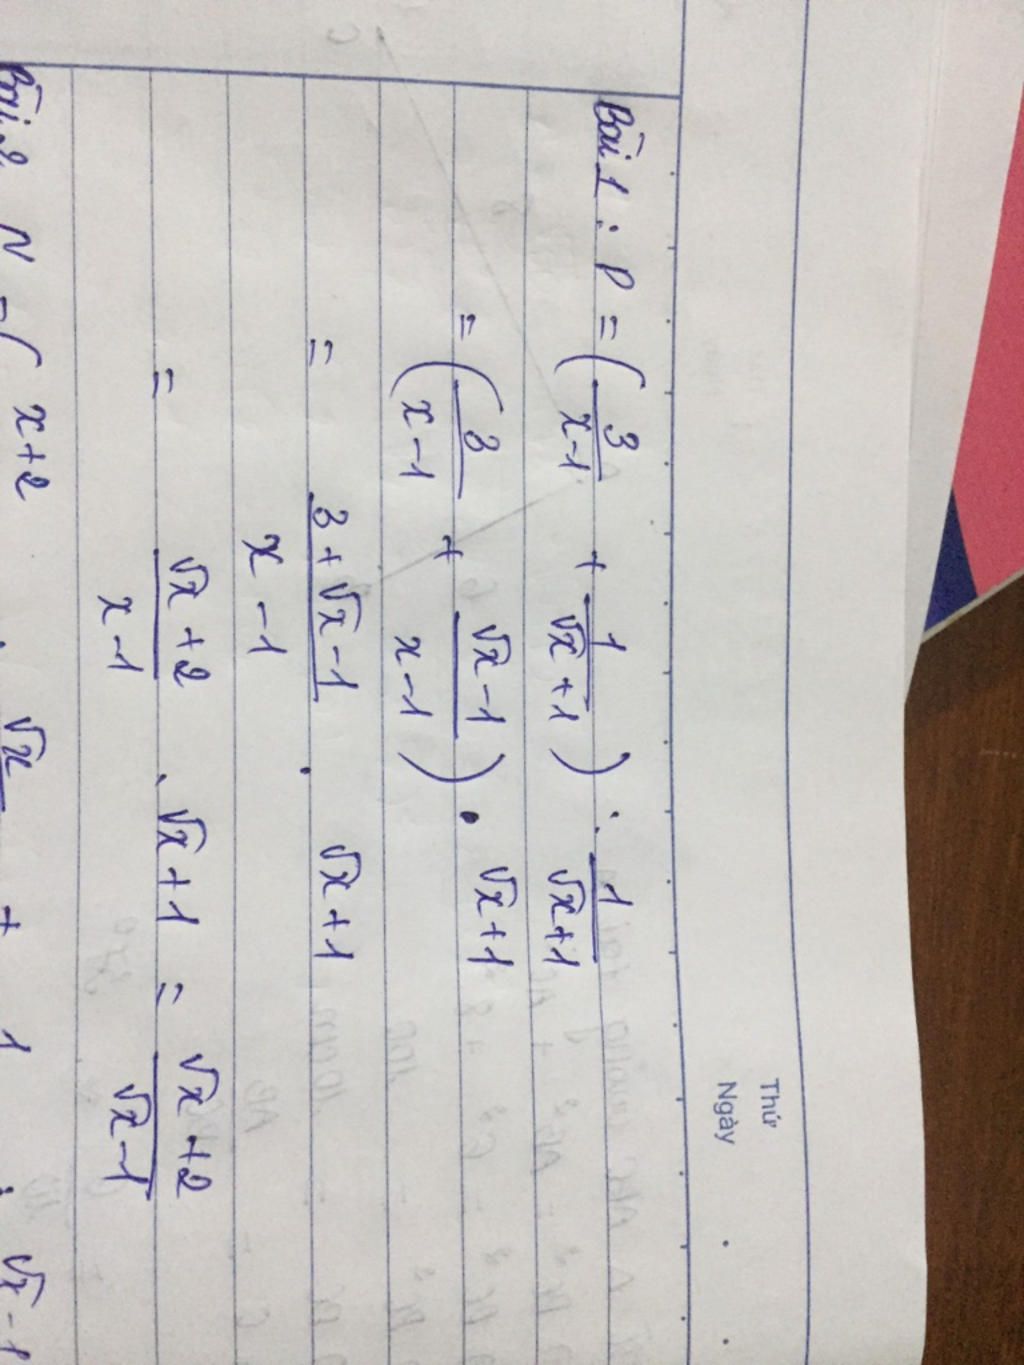 Thứ
Ngày
Bài 1 : P = ( 3/(x-1) + 1/(√x+1) ) : 1/(√x+1)
= ( 3/(x-1) + (√x-1)/(x-1) ) . √x+1
= (3+√x-1)/(x-1) . √x+1
= (√x+2)/(x-1) . √x+1 = (√x+2)/(√x-1)
Bài 2 N = ( x+2 √x + 1 : √x-1